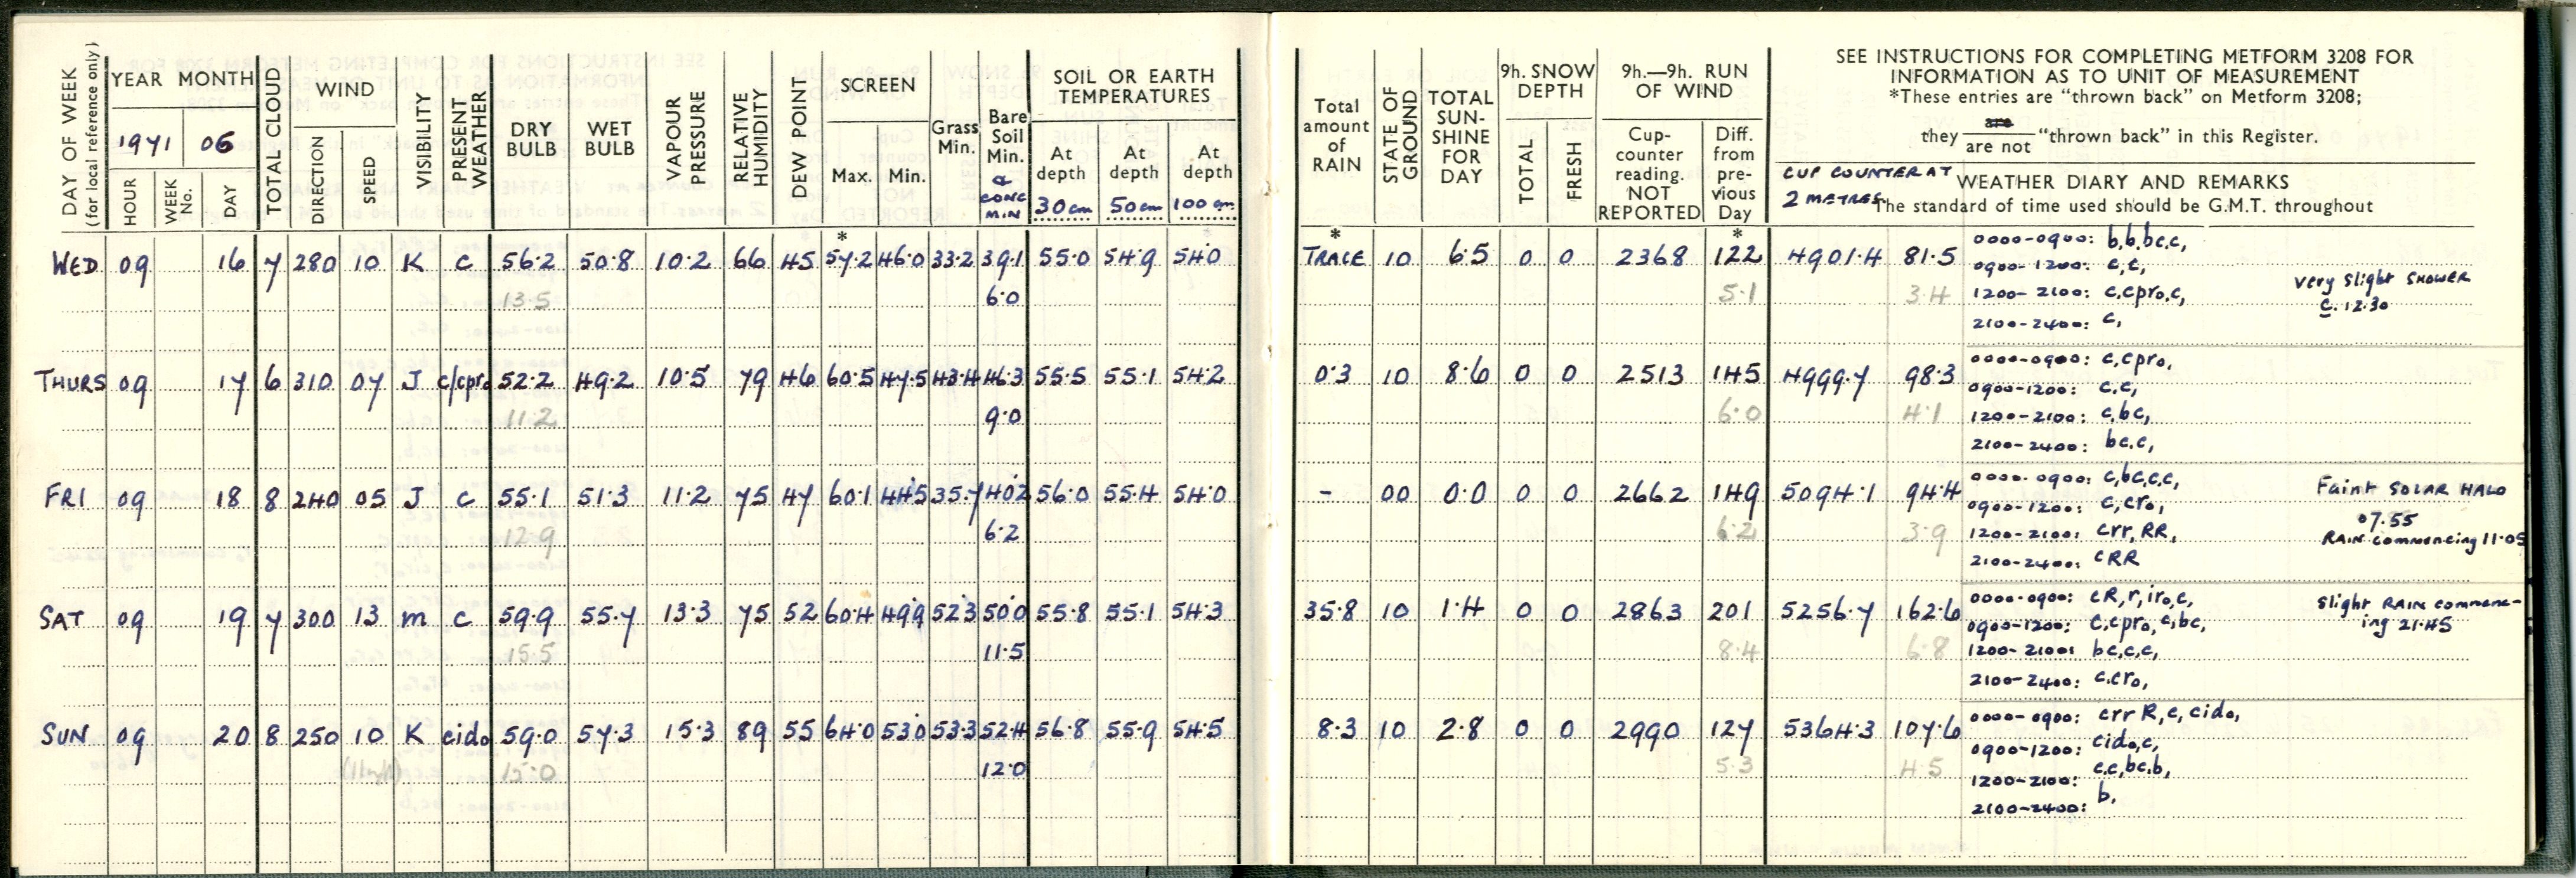 DAY OF WEEK
(for local reference only)
YEAR MONTH
1971 06
HOUR
WEEK No.
DAY
TOTAL CLOUD
WIND
DIRECTION
SPEED
VISIBILITY
PRESENT WEATHER
DRY BULB
WET BULB
VAPOUR PRESSURE
RELATIVE HUMIDITY
DEW POINT
SCREEN
Max. Min.
Grass Min.
Bare Soil Min.
& CONC MIN
SOIL OR EARTH TEMPERATURES
At depth 30 cm
At depth 50 cm
At depth 100 cm
Total amount of RAIN
STATE OF GROUND
TOTAL SUN-SHINE FOR DAY
9h. SNOW DEPTH
TOTAL
FRESH
9h.—9h. RUN OF WIND
Cup-counter reading. NOT REPORTED
Diff. from pre-vious Day
SEE INSTRUCTIONS FOR COMPLETING METFORM 3208 FOR
INFORMATION AS TO UNIT OF MEASUREMENT
*These entries are "thrown back" on Metform 3208;
they are / are not "thrown back" in this Register.
CUP COUNTER AT
2 METRES.
WEATHER DIARY AND REMARKS
The standard of time used should be G.M.T. throughout
* * *
WED 09 16 7 280 10 K c 56.2 50.8 10.2 66 45 57.2 46.0 33.2 39.1 55.0 54.9 54.0 TRACE 10 6.5 0 0 2368 122 4901.4 81.5
13.5 6.0 5.1 3.4
0000-0900: b,b,bc,c,
0900-1200: c,c,
1200-2100: c,cpro,c,
2100-2400: c,
very slight SHOWER
c. 12.30
THURS 09 17 6 310 07 J c/cpro 52.2 49.2 10.5 79 46 60.5 47.5 43.4 46.3 55.5 55.1 54.2 0.3 10 8.6 0 0 2513 145 4999.7 98.3
11.2 9.0 6.0 4.1
0000-0900: c,cpro,
0900-1200: c,c,
1200-2100: c,bc,
2100-2400: bc,c,
FRI 09 18 8 240 05 J c 55.1 51.3 11.2 75 47 60.1 44.5 35.7 40.2 56.0 55.4 54.0 - 00 0.0 0 0 2662 149 5094.1 94.4
12.9 6.2 6.2 3.9
0000-0900: c,bc,c,c,
0900-1200: c,cro,
1200-2100: crr,RR,
2100-2400: cRR
Faint SOLAR HALO
07.55
RAIN commencing 11.05
SAT 09 19 7 300 13 m c 59.9 55.7 13.3 75 52 60.4 49.9 52.3 50.0 55.8 55.1 54.3 35.8 10 1.4 0 0 2863 201 5256.7 162.6
15.5 11.5 8.4 6.8
0000-0900: cR,r,iro,c,
0900-1200: c,cpro,c,bc,
1200-2100: bc,c,c,
2100-2400: c,cro,
Slight RAIN commenc-
ing 21.45
SUN 09 20 8 250 10 K cido 59.0 57.3 15.3 89 55 64.0 53.0 53.3 52.4 56.8 55.9 54.5 8.3 10 2.8 0 0 2990 127 5364.3 107.6
15.0 12.0 5.3 4.5
0000-0900: crrR,c,cido,
0900-1200: cido,c,
1200-2100: c,c,bc,b,
2100-2400: b,